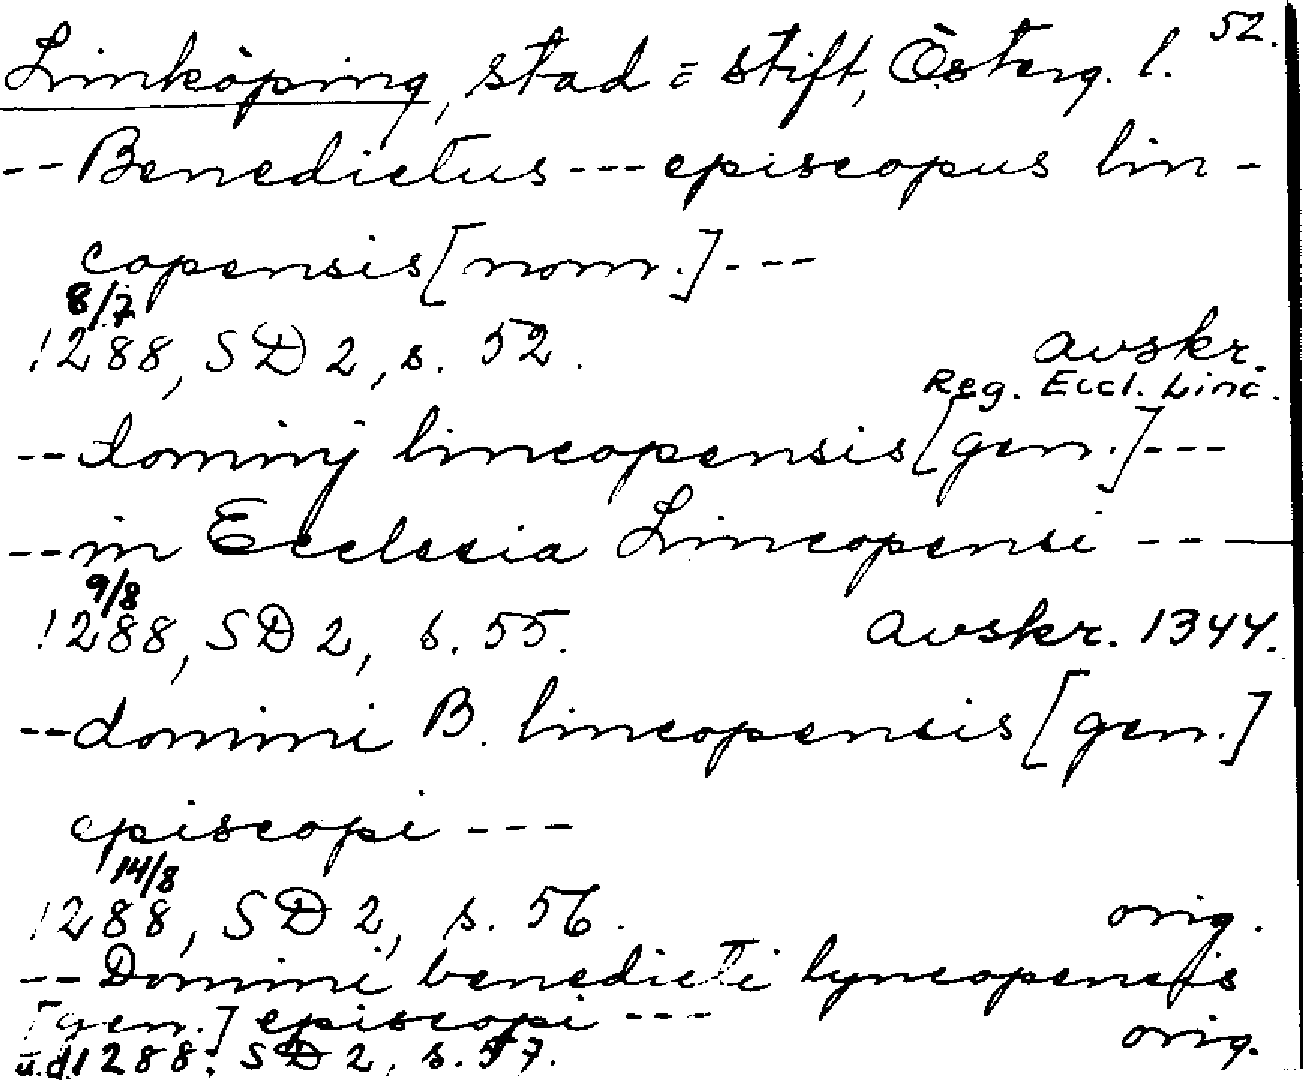 52.
Linköping, stad = stift, Österg. l.
-- Benedictus --- episcopus lin-
copensis [nom.] ---
8/7
1288, SD 2, s. 52. avskr.
Reg. Eccl. Linc.
-- dominj lincopensis [gen.] ---
-- in Ecclesia Lincopensi ---
9/8
1288, SD 2, s. 55. avskr. 1344.
-- domini B. lincopensis [gen.]
episcopi ---
14/8
1288, SD 2, s. 56. orig.
-- Domini benedicti lyncopensis
[gen.] episcopi ---
u.d. 1288: SD 2, s. 57. orig.